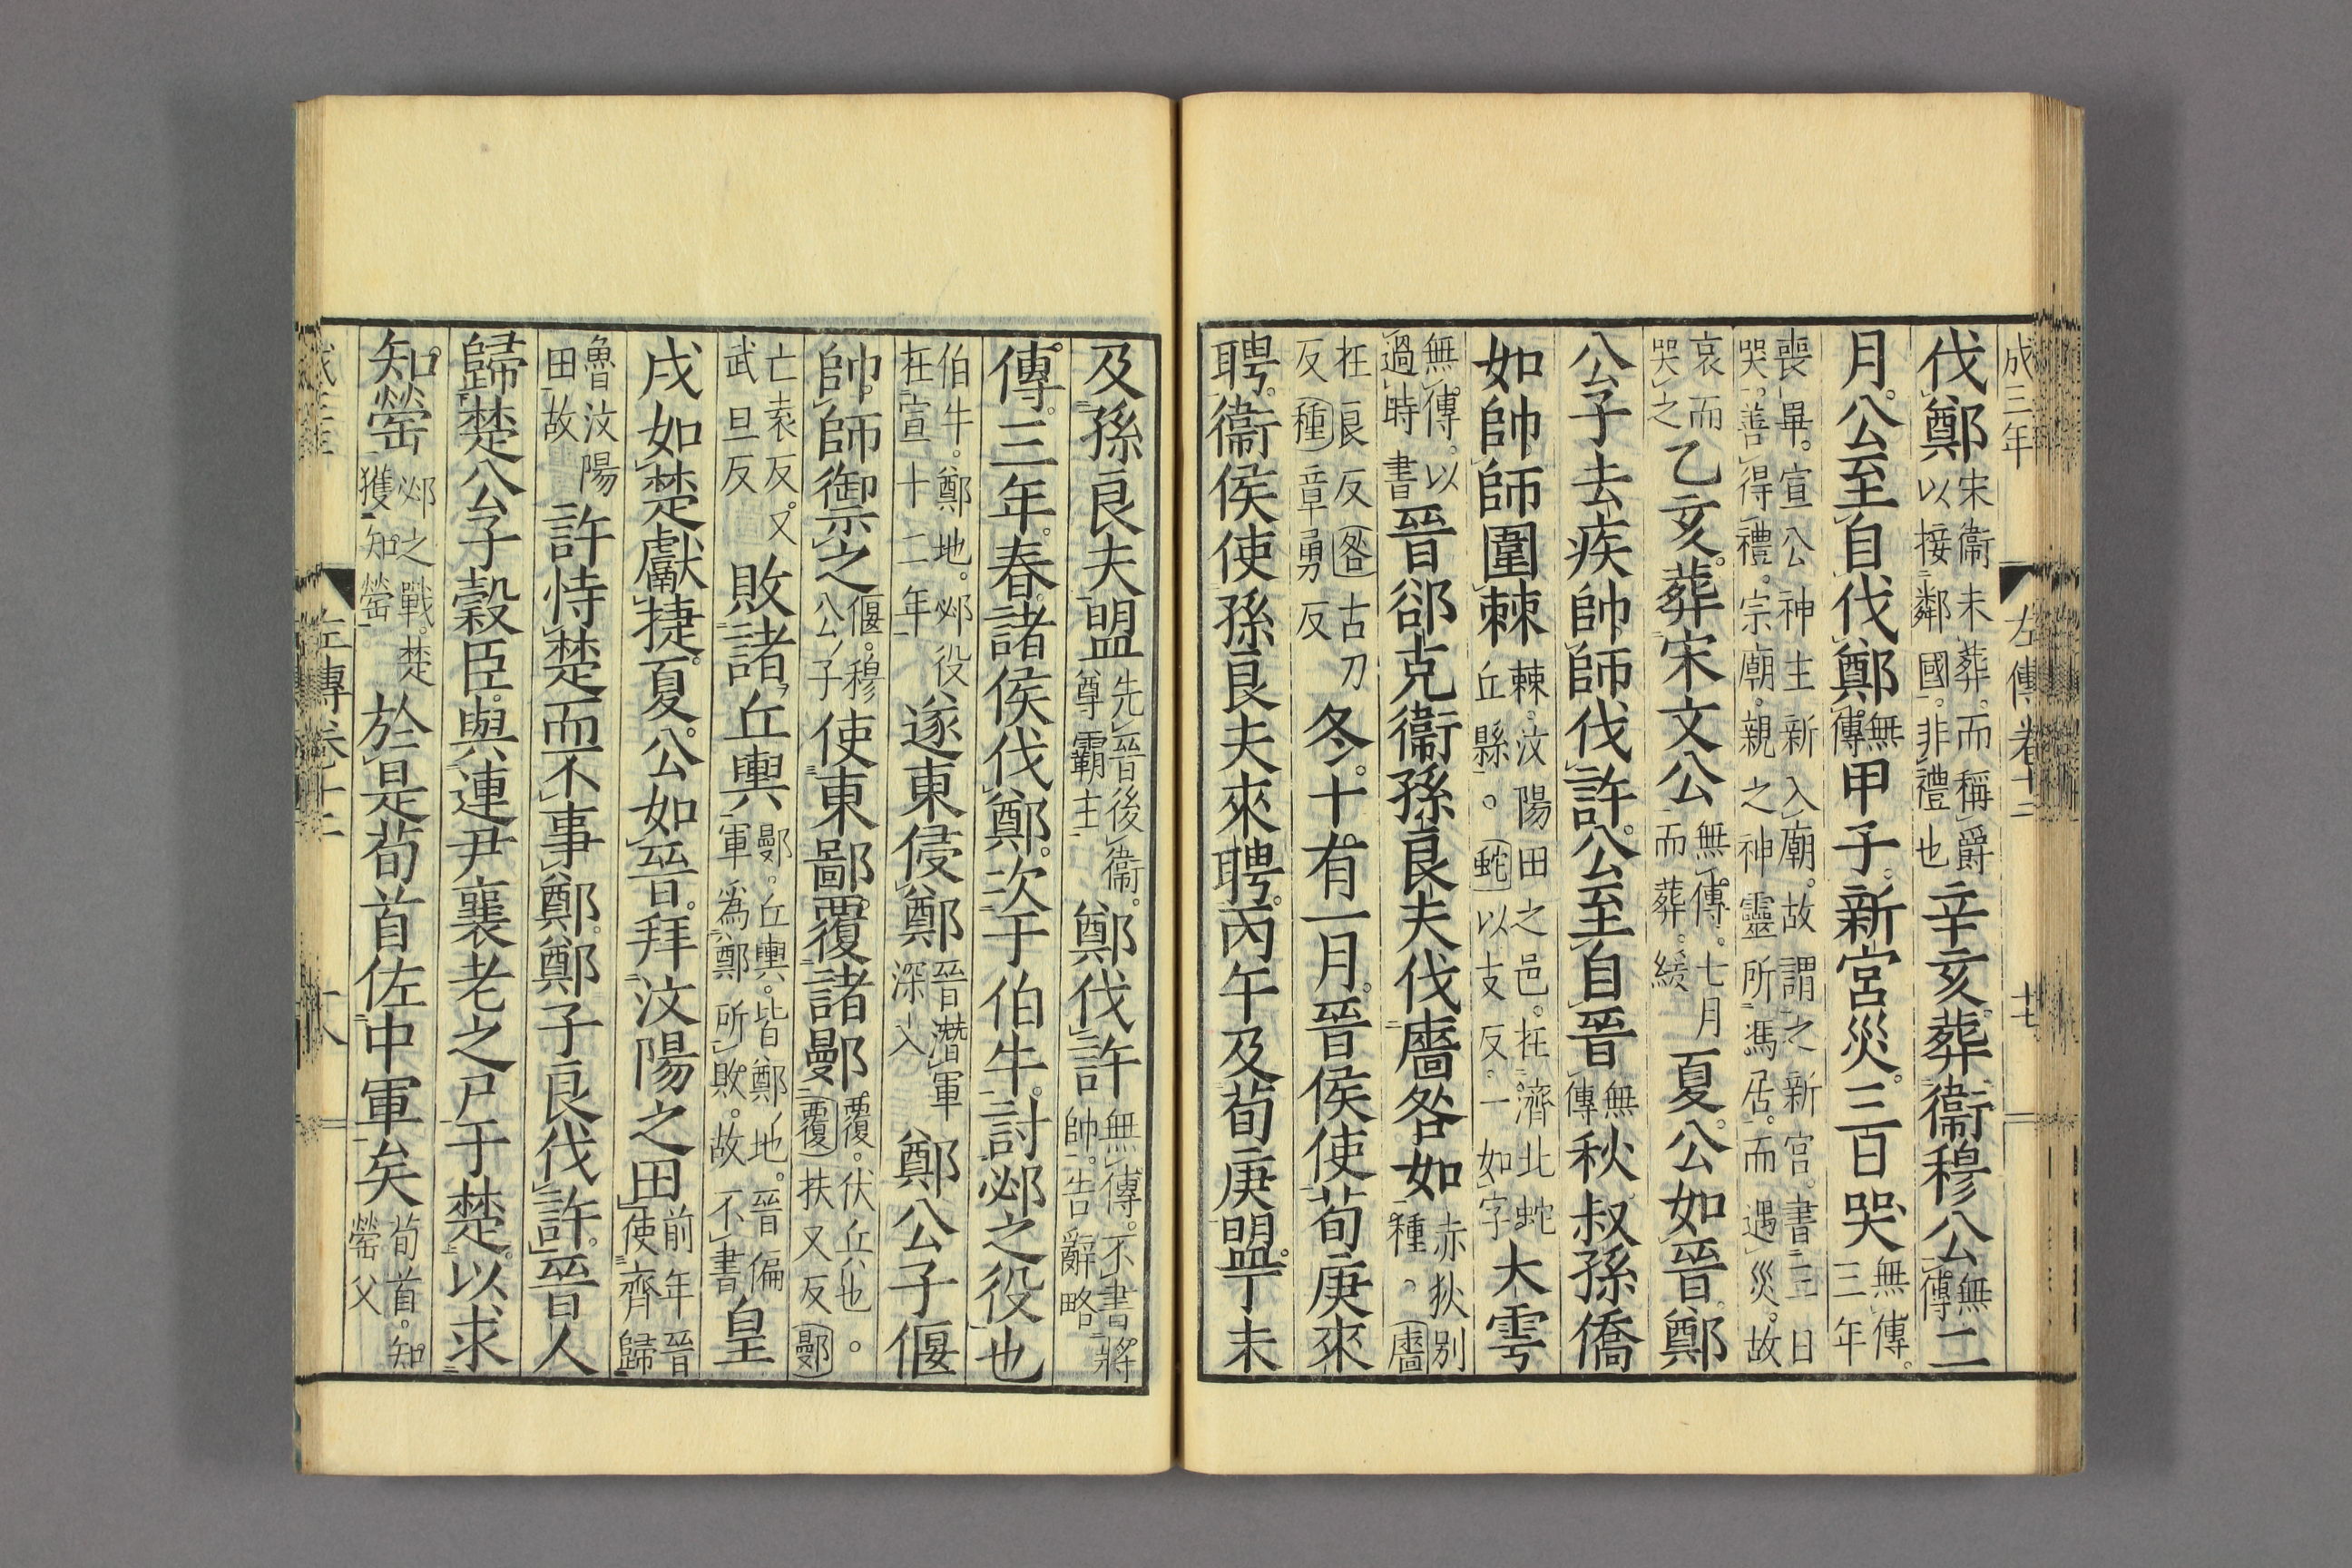 成三年 左傳卷十二 十七
伐鄭宋衞未葬而稱爵以接鄰國非禮也辛亥葬衞穆公無傳二
月公至自伐鄭無傳甲子新宮災三日哭無傳三年
喪畢宣公神主新入廟故謂之新宮書三日哭善得禮宗廟親之神靈所馮居而遇災故
哀而哭之乙亥葬宋文公無傳七月而葬緩夏公如晉鄭
公子去疾帥師伐許公至自晉無傳秋叔孫僑
如帥師圍棘棘汶陽田之邑在濟北蛇丘縣。蛇以支反一如字大雩
無傳以過時書晉郤克衞孫良夫伐廧咎如赤狄別種。廧
在良反咎古刀反種章勇反冬十有一月晉侯使荀庚來
聘衞侯使孫良夫來聘丙午及荀庚盟丁未
及孫良夫盟先晉後衞尊霸主鄭伐許無傳不書將帥告辭略
傳三年春諸侯伐鄭次于伯牛討邲之役也
伯牛鄭地邲役在宣十二年遂東侵鄭晉潛軍深入鄭公子偃
帥師禦之偃穆公子使東鄙覆諸鄤覆伏丘也。覆扶又反鄤
亡袁反又武旦反敗諸丘輿鄤丘輿皆鄭地晉偏軍爲鄭所敗故不書皇
戌如楚獻捷夏公如晉拜汶陽之田前年晉使齊歸
魯汶陽田故許恃楚而不事鄭鄭子良伐許晉人
歸楚公子穀臣與連尹襄老之尸于楚以求
知罃邲之戰楚獲知罃於是荀首佐中軍矣荀首知罃父
左傳卷十二 十八